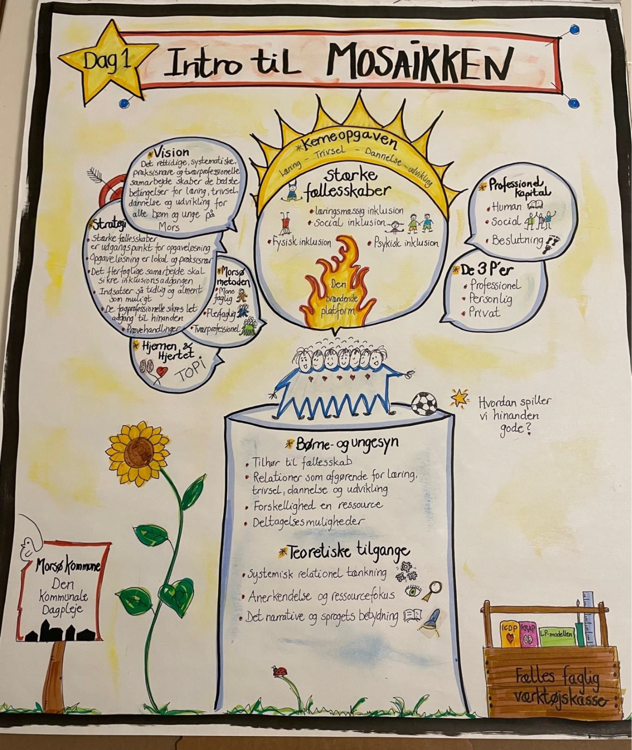 Dag 1
Intro til MOSAIKKEN
Kerneopgaven
Læring - Trivsel - Dannelse - udvikling
Stærke
fællesskaber
• læringsmæssig inklusion
• Social inklusion
• Fysisk inklusion
• Psykisk inklusion
Den
brændende
platform
Vision
Det rettidige, systematiske,
praksisnære og tværprofessionelle
samarbejde skaber de bedste
betingelser for læring, trivsel,
dannelse og udvikling for
alle børn og unge på
Mors
Strategi
• Stærke fællesskaber
er udgangspunkt for opgaveløsning
• Opgaveløsning er lokal og praksisnær
• Det flerfaglige samarbejde skal
sikre inklusionsopgaven
• Indsatser så tidlig og alment
som muligt
• De fagprofessionelle sikres let
adgang til hinanden
• Prøvehandlinger
Morsø
metoden
• Mono
faglig
• Flerfaglig
• Tværprofessionel
Hjernen &
Hjertet
TOPI
Professionel
Kapital
• Human
• Social
• Beslutning
De 3 P'er
• Professionel
• Personlig
• Privat
Hvordan spiller
vi hinanden
gode?
Børne- og ungesyn
• Tilhør til fællesskab
• Relationer som afgørende for læring,
trivsel, dannelse og udvikling
• Forskellighed en ressource
• Deltagelsesmuligheder
Teoretiske tilgange
• Systemisk relationel tænkning
• Anerkendelse og ressourcefokus
• Det narrative og sprogets betydning
Morsø Kommune
Den
Kommunale
Dagpleje
LP-modellen
Fælles faglig
værktøjskasse